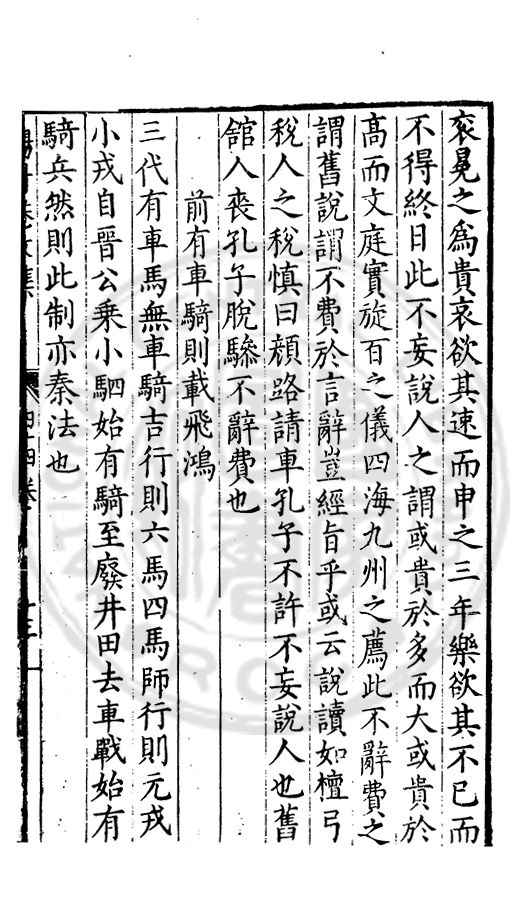 衮冕之為貴哀欲其速而申之三年樂欲其不已而
不得終日此不妄說人之謂或貴於多而大或貴於
高而文庭實旅百之儀四海九州之薦此不辭費之
謂舊說謂不費於言辭豈經旨乎或云說讀如檀弓
稅人之稅慎曰顔路請車孔子不許不妄說人也舊
舘人喪孔子脫驂不辭費也
前有車騎則載飛鴻
三代有車馬無車騎吉行則六馬四馬師行則元戎
小戎自晉公乗小駟始有騎至廢井田去車戰始有
騎兵然則此制亦秦法也
四十四卷